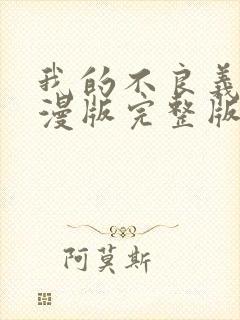 我的不良義
漫版完整版
阿莫斯